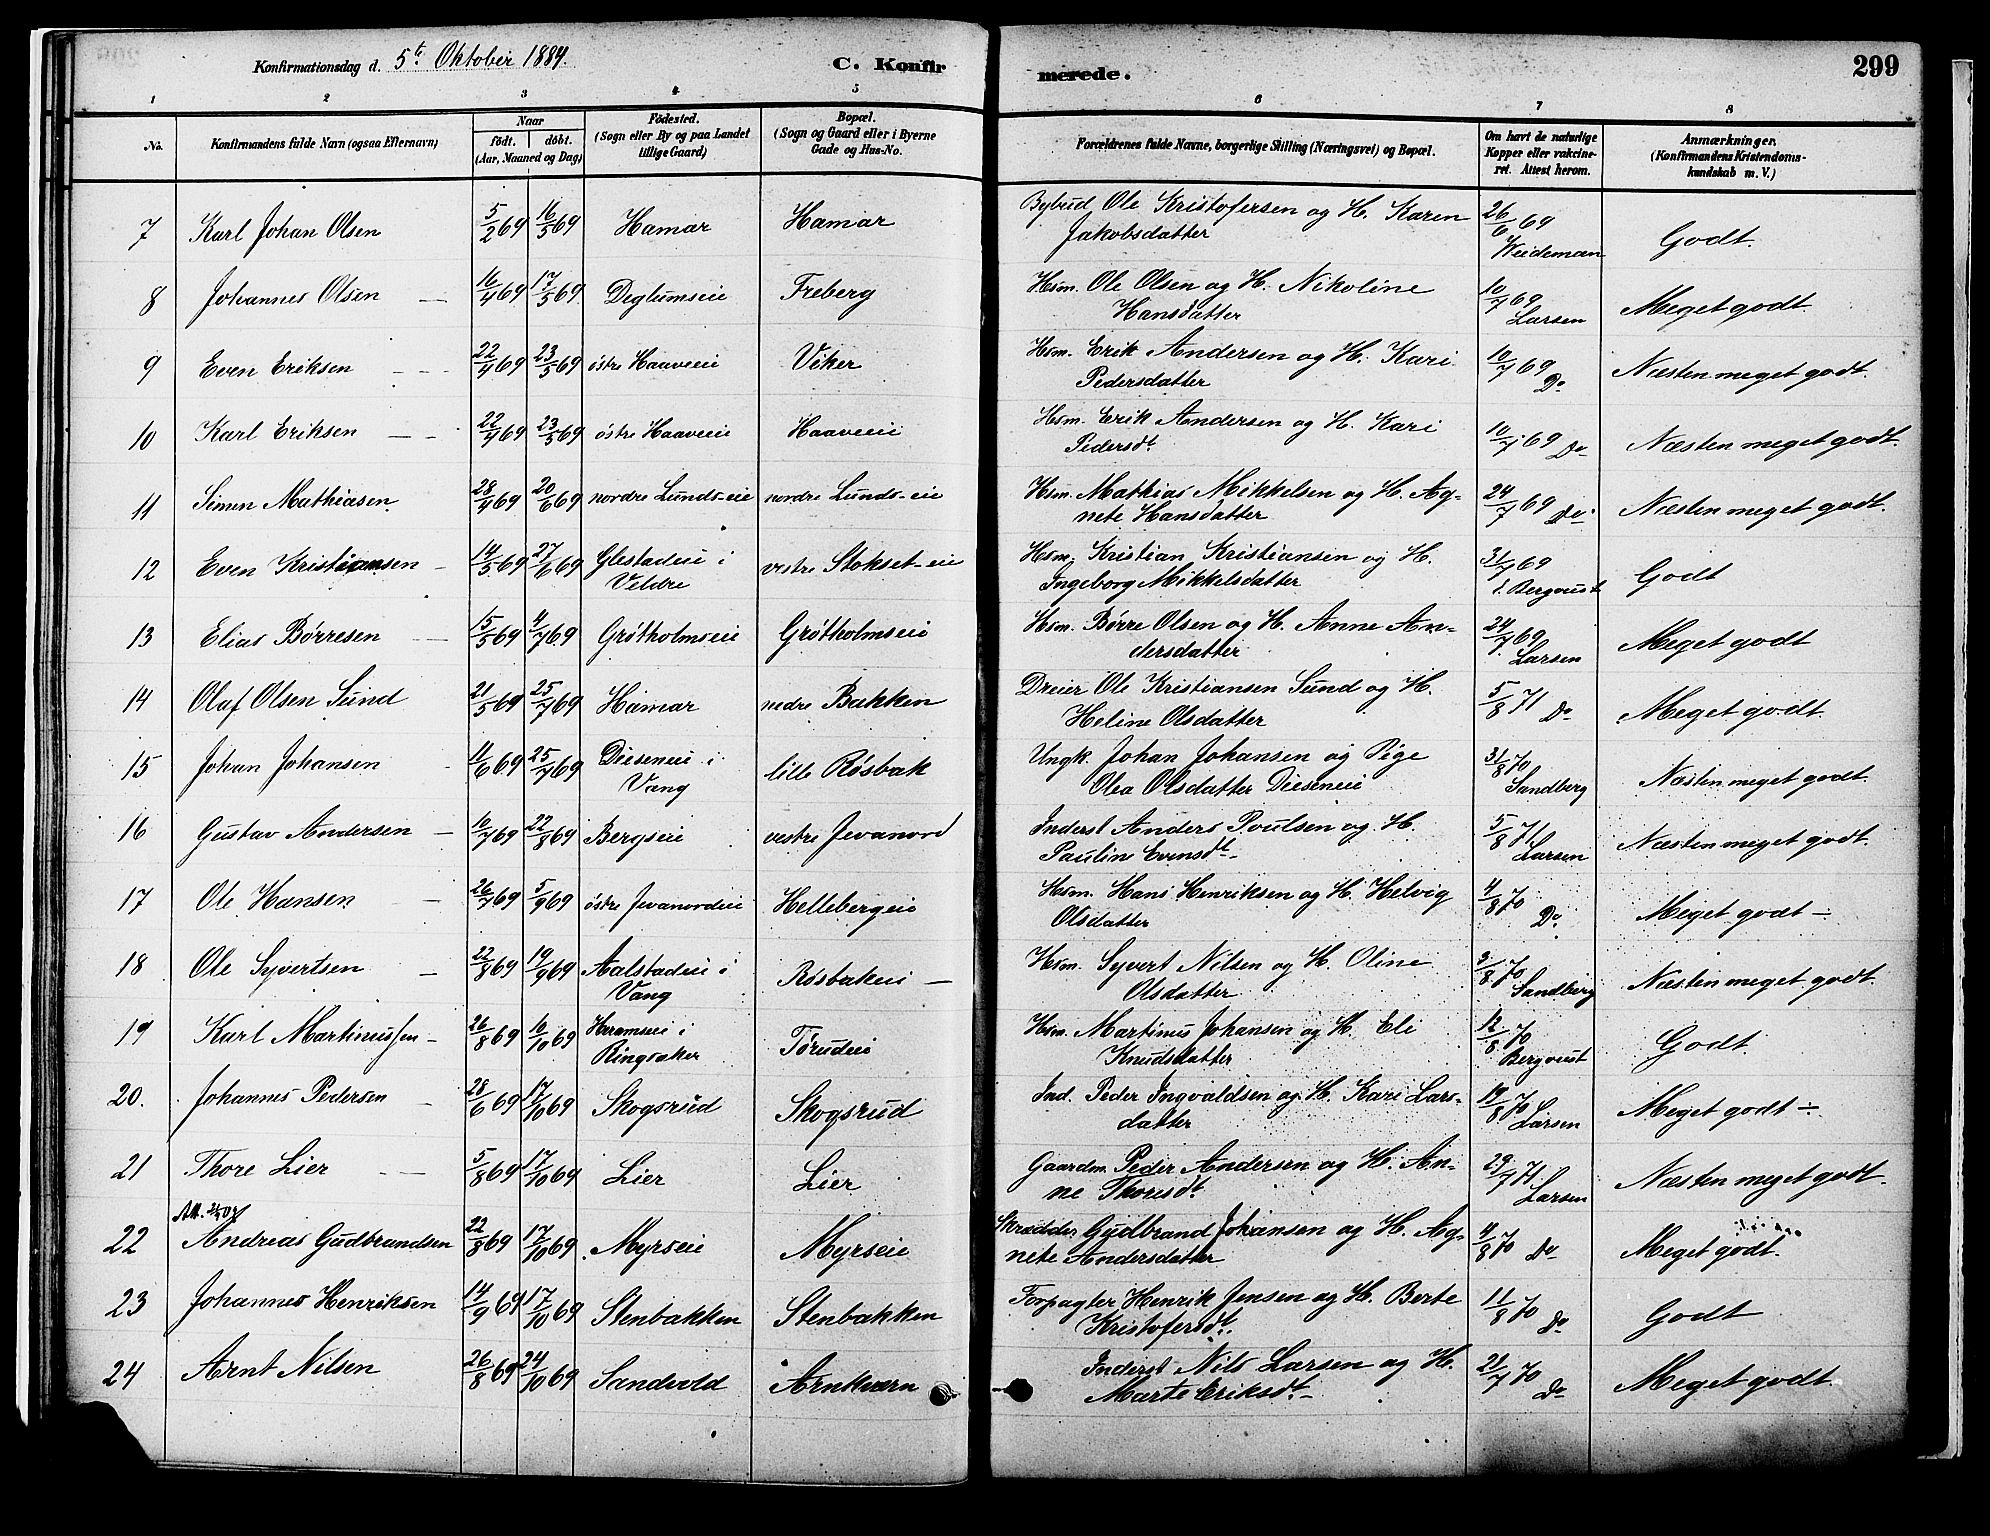 Konfirmationsdag d. 5te Oktober 1884. C. Konfirmerede. 299
1 2 3 4 5 6 7 8
No. Konfirmandens fulde Navn (ogsaa Efternavn) Naar født. døbt. (Aar, Maaned og Dag) Fødested. (Sogn eller By og paa Landet tillige Gaard) Bopæl. (Sogn og Gaard eller i Byerne Gade og Hus-No. Forældrenes fulde Navne, borgerlige Stilling (Næringsvei) og Bopæl. Om havt de naturlige Kopper eller vakcineret. Attest herom. Anmærkninger. (Konfirmandens Kristendomskundskab m. V.)
7 Karl Johan Olsen 5/2 69 16/5 69 Hamar Hamar Bybud Ole Kristofersen og H. Karen Jakobsdatter 26/6 69 Weideman Godt.
8 Johannes Olsen 16/4 69 17/5 69 Deglumseie Freberg Hsm. Ole Olsen og H. Nikoline Hansdatter 10/7 69 Larsen Meget godt.
9 Even Eriksen 22/4 69 23/5 69 østre Haaveeie Viker Hsm. Erik Andersen og H. Kari Pedersdatter 10/7 69 Do Næsten meget godt.
10 Karl Eriksen 22/4 69 23/5 69 østre Haaveeie Haaveeie Hsm. Erik Andersen og H. Kari Pedersdt. 10/7 69 Do Næsten meget godt.
11 Simen Mathiasen 28/4 69 20/6 69 nordre Lunds-eie nordre Lunds-eie Hsm. Mathias Mikkelsen og H. Agnete Hansdatter 24/7 69 Do Næsten meget godt.
12 Even Kristiansen 14/5 69 27/6 69 Glestadeie i Veldre vestre Stokset-eie Hsm. Kristian Kristiansen og H. Ingeborg Mikkelsdatter 31/7 69 Bergqust Godt
13 Elias Børresen 15/5 69 4/7 69 Grøtholmseie Grøtholmseie Hsm. Børre Olsen og H. Anne Andersdatter 24/7 69 Larsen Meget godt
14 Olaf Olsen Sund 21/5 69 25/7 69 Hamar nedre Bakken Dreier Ole Kristiansen Sund og H. Heline Olsdatter 5/8 71 Do Meget godt.
15 Johan Johansen 11/6 69 25/7 69 Dieseneie i Vang lille Røsbak Ungk. Johan Johansen og Pige Olea Olsdatter Dieseneie 31/8 70 Sandberg Næsten meget godt.
16 Gustav Andersen 10/7 69 22/8 69 Bergseie vestre Jevanord Inderst Anders Poulsen og H. Pauline Evensdt. 5/8 71 Larsen Næsten meget godt.
17 Ole Hansen 26/7 69 5/9 69 østre Jevanordeie Hellebergeie Hsm. Hans Henriksen og H. Helvig Olsdatter 4/8 70 Do Meget godt ÷
18 Ole Syvertsen 22/8 69 19/9 69 Aalstadeie i Vang Røsbakeie Hsm. Syvert Nilsen og H. Oline Olsdatter 3/8 70 Sandberg Næsten meget godt.
19 Karl Martinussen 26/8 69 16/10 69 Haramseie i Ringsaker Tørudeie Hsm. Martinus Johansen og H. Eli Knudsdatter 12/8 70 Bergqust Godt.
20. Johannes Pedersen 28/6 69 17/10 69 Skogsrud Skogsrud Ind. Peder Ingvaldsen og H. Kari Larsdatter 19/8 70 Larsen Meget godt ÷
21 Thore Lier 5/8 69 17/10 69 Lier Lier Gaardm. Peder Andersen og H. Anne Thoresdt. 29/7 71 Larsen Næsten meget godt.
22 Andreas Gudbrandsen 22/8 69 17/10 69 Myrseie Myrseie Skrædder Gudbrand Johansen og H. Agnete Andersdatter 4/8 70 Do Meget godt.
23 Johannes Henriksen 14/9 69 17/10 69 Stenbakken Stenbakken Forpagter Henrik Jensen og H. Berte Kristofersdt. 11/8 70 Do Godt
24 Arnt Nilsen 26/8 69 24/10 69 Sandvold Arnkværn Inderst Nils Larsen og H. Marte Eriksdt. 21/7 70 Do Meget godt.